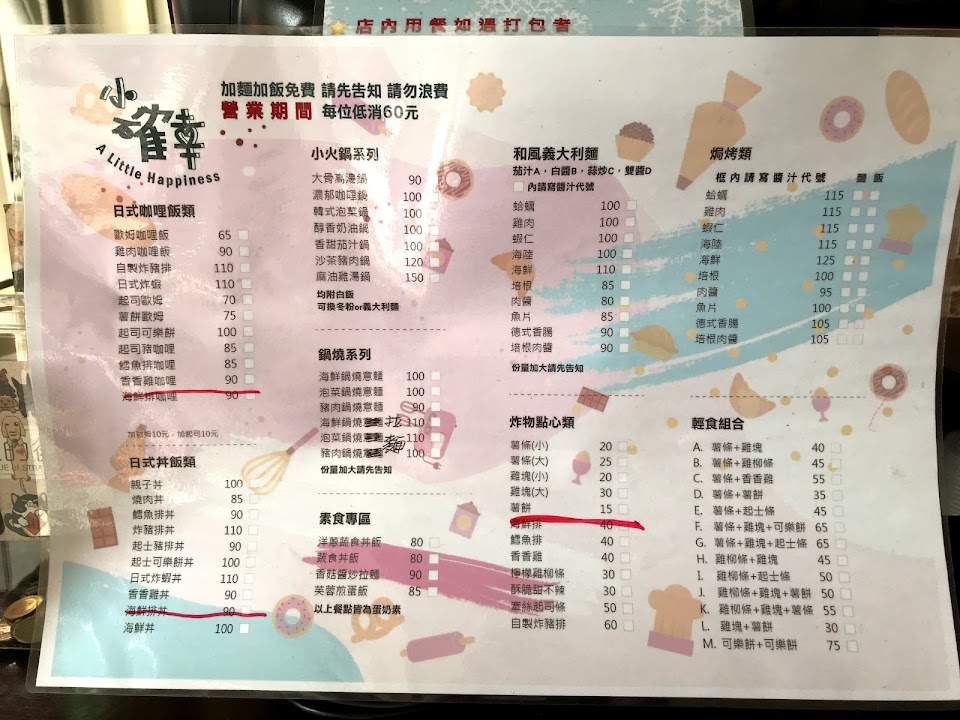 店內用餐如過打包者
小確幸
A Little Happiness
加麵加飯免費 請先告知 請勿浪費
營業期間 每位低消60元
日式咖哩飯類
歐姆咖哩飯 65
雞肉咖哩飯 90
自製炸豬排 110
日式炸蝦 110
起司歐姆 70
薯餅歐姆 75
起司可樂餅 100
起司豬咖哩 85
鱈魚排咖哩 85
香香雞咖哩 90
海鮮排咖哩 90
10元 - 加起司10元
日式丼飯類
親子丼 100
燒肉丼 85
鱈魚排丼 90
炸豬排丼 110
起士豬排丼 90
起士可樂餅丼 100
日式炸蝦丼 110
香香雞丼 90
海鮮排丼 90
海鮮丼 100
小火鍋系列
大骨高湯鍋 90
濃郁咖哩鍋 100
韓式泡菜鍋 100
醇香奶油鍋 100
香甜茄汁鍋 100
沙茶豬肉鍋 120
麻油雞湯鍋 150
均附白飯
可換冬粉or義大利麵
鍋燒系列
海鮮鍋燒意麵 100
泡菜鍋燒意麵 100
豬肉鍋燒意麵 90
海鮮鍋燒 110
泡菜鍋燒 110
豬肉鍋燒 100
拉麵
份量加大請先告知
素食專區
洋蔥蔬食丼飯 80
蔬食丼飯 80
香菇醬炒拉麵 90
芙蓉煎蛋飯 85
以上餐點皆為蛋奶素
和風義大利麵
茄汁A，白醬B，蒜炒C，雙醬D
內請寫醬汁代號
蛤蠣 100
雞肉 100
蝦仁 100
海陸 100
海鮮 110
培根 85
肉醬 80
魚片 85
德式香腸 90
培根肉醬 90
份量加大請先告知
炸物點心類
薯條(小) 20
薯條(大) 25
雞塊(小) 20
雞塊(大) 30
薯餅 15
海鮮排 40
鱈魚排 40
香香雞 40
檸檬雞柳條 30
酥脆甜不辣 30
牽絲起司條 50
自製炸豬排 60
焗烤類
框內請寫醬汁代號 麵 飯
蛤蠣 115
雞肉 115
蝦仁 115
海陸 115
海鮮 125
培根 100
肉醬 95
魚片 100
德式香腸 105
培根肉醬 105
輕食組合
A. 薯條+雞塊 40
B. 薯條+雞柳條 45
C. 薯條+香香雞 55
D. 薯條+薯餅 35
E. 薯條+起士條 45
F. 薯條+雞塊+可樂餅 65
G. 薯條+雞塊+起士條 65
H. 雞柳條+雞塊 45
I. 雞柳條+起士條 50
J. 雞柳條+雞塊+薯餅 50
K. 雞柳條+雞塊+薯條 55
L. 雞塊+薯餅 30
M. 可樂餅+可樂餅 75